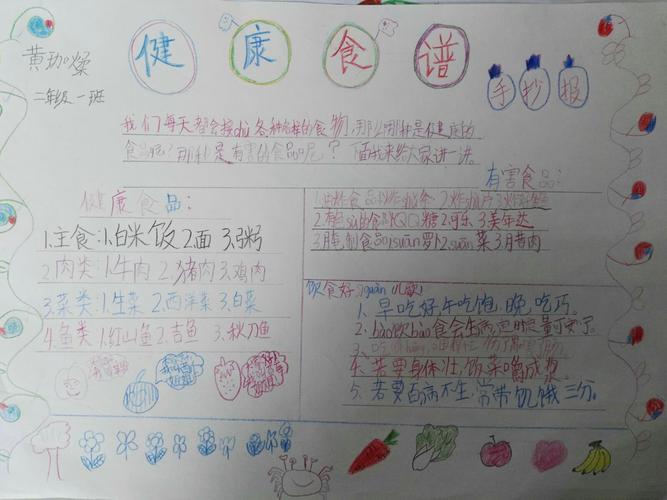 健康食谱
手抄报
黄
二年级一班
我们每天都会接chù各种各样的食物,那么哪些是健康的
食品呢?那些是有害的食品呢?下面我来给大家讲一讲。
健康食品:
1.主食:1.白米饭 2.面 3.粥
2.肉类:1.牛肉 2.猪肉 3.鸡肉
3.菜类:1.生菜 2.西洋菜 3.白菜
4.鱼类:1.红山鱼 2.吉鱼 3.秋刀鱼
有害食品:
1.油炸食品
2.有色sù的食品 1.QQ糖 2.可乐 3.美年达
3.腌制食品 1.suān萝卜 2.suān菜 3.腊肉
饮食好xíguàn儿歌
1、早吃好,午吃饱,晚吃巧。
2.bào饮bào食会生病,定时定量可安宁。
4.若要身体壮,饭菜嚼成浆。
5.若要百病不生,常带饥饿三分。